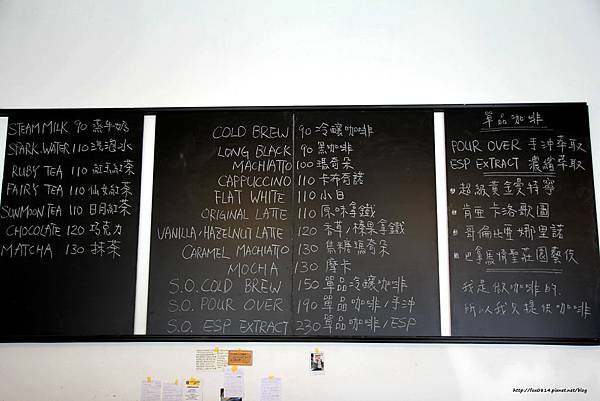 STEAM MILK 90 蒸牛奶
SPARK.WATER 110 汽泡水
RUBY TEA 110 紅玉紅茶
FAIRY TEA 110 仙女紅茶
SUNMOON TEA 110 日月紅茶
CHOCOLATE 120 巧克力
MATCHA 130 抹茶
COLD BREW 90 冷釀咖啡
LONG BLACK 90 黑咖啡
MACHIATTO 100 瑪奇朵
CAPPUCCINO 110 卡布奇諾
FLAT WHITE 110 小白
ORIGINAL LATTE 110 原味拿鐵
VANILLA/HAZELNUT LATTE 120 香草/榛果拿鐵
CARAMEL MACHIATTO 130 焦糖瑪奇朵
MOCHA 130 摩卡
S.O. COLD BREW 150 單品冷釀咖啡
S.O. POUR OVER 190 單品咖啡/手沖
S.O. ESP EXTRACT 230 單品咖啡/ESP
單品咖啡
POUR OVER 手沖萃取
ESP EXTRACT 濃縮萃取
超級黃金曼特寧
肯亞卡洛歌圖
哥倫比亞娜里諾
巴拿馬情聖莊園藝伎
我是做咖啡的
所以我只提供咖啡
http://fox0814.pixnet.net/blog